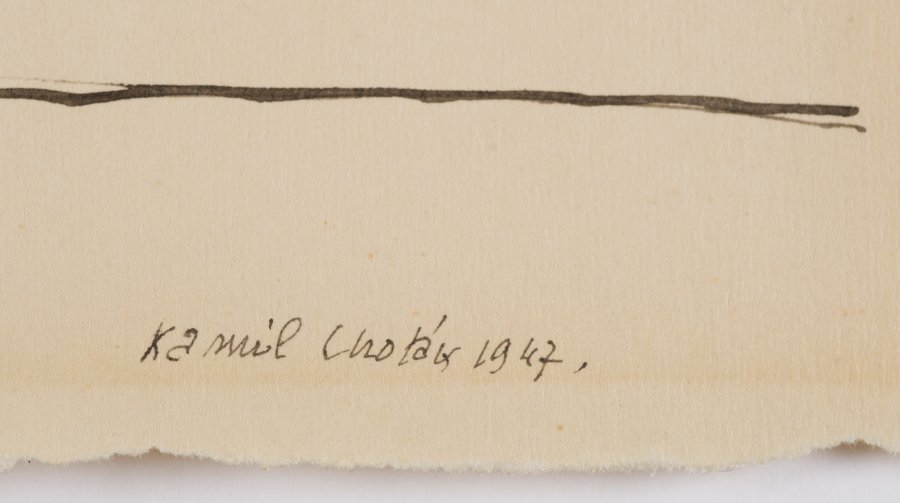 Kamil Lhoták 1947.